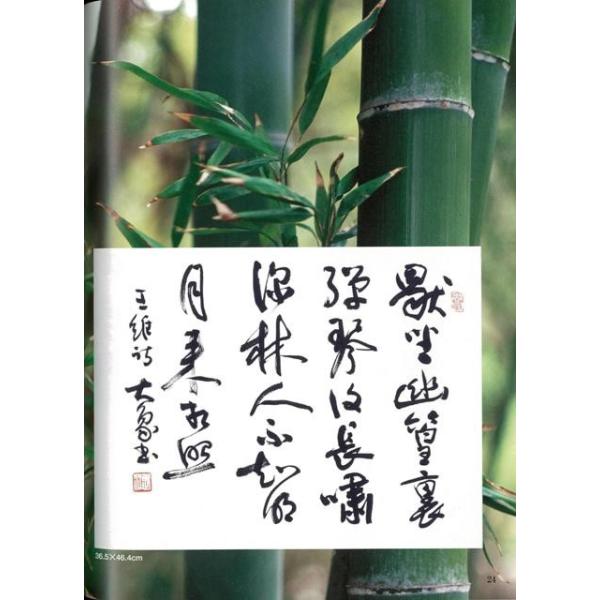 獨坐幽篁裏
彈琴復長嘯
深林人不知明
月来相照
王維詩 大象書
36.5×46.4cm
24